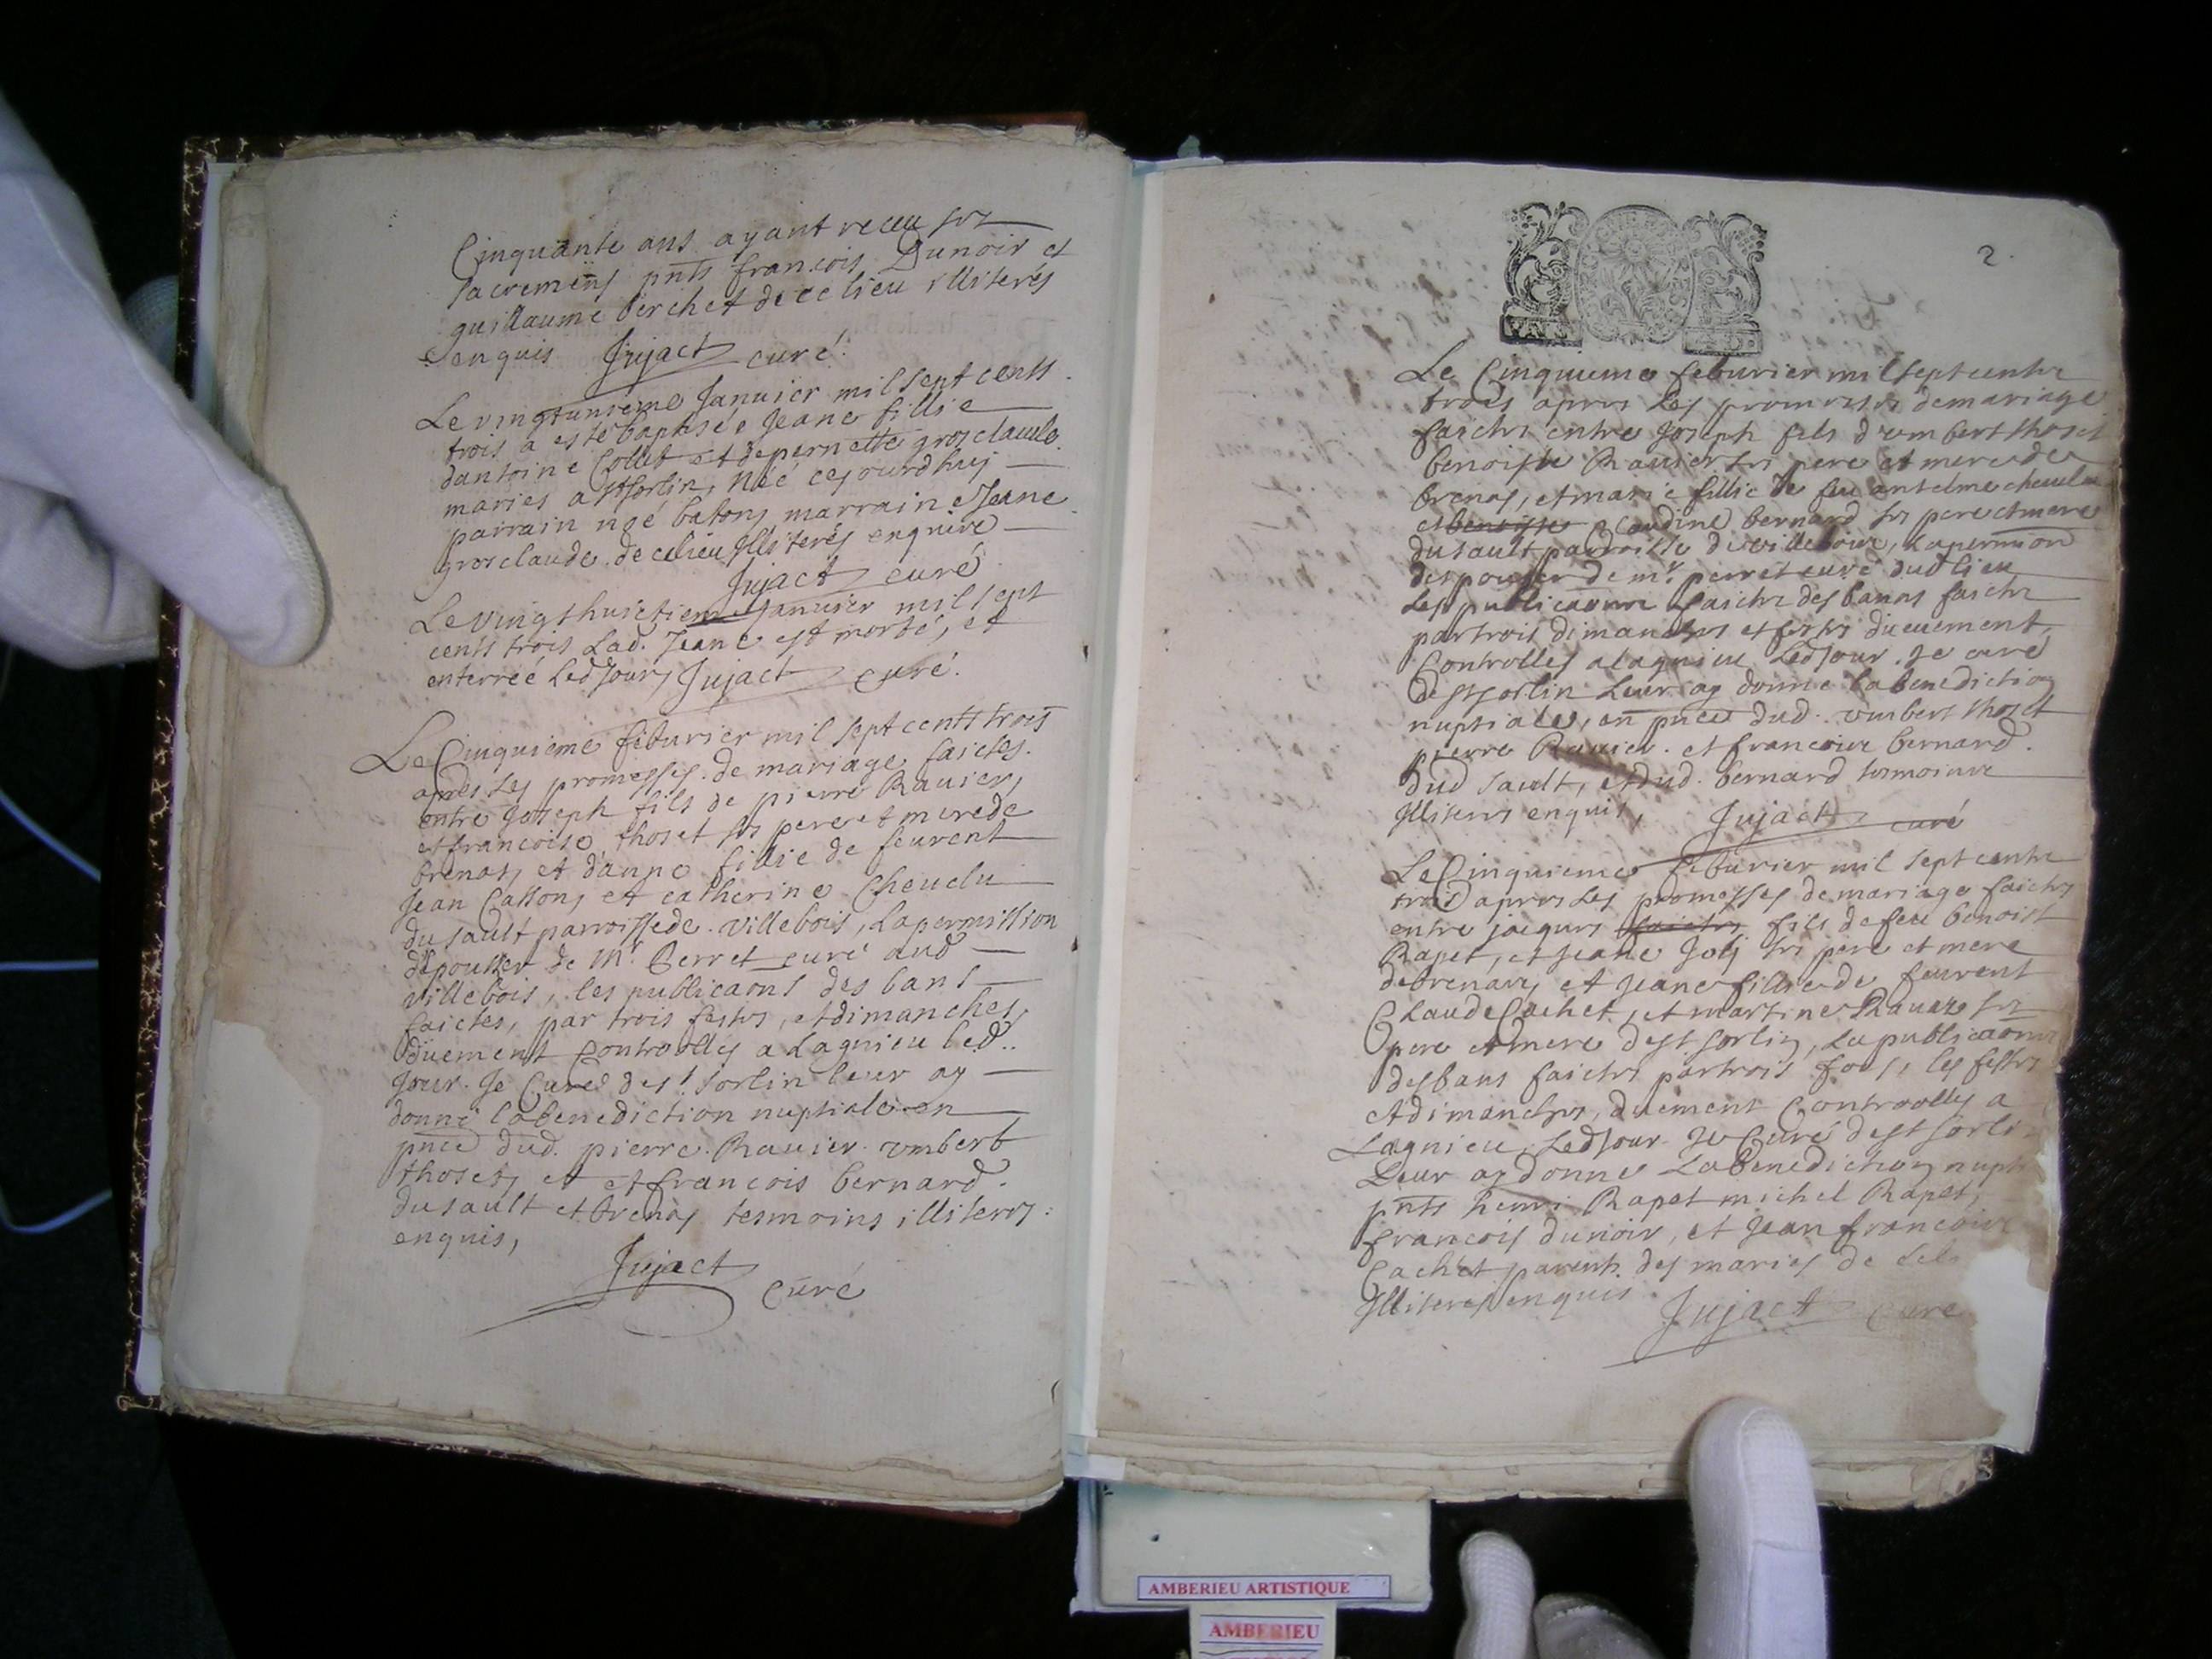 Cinquante ans ayant receu ses
sacremens pnts francois Dunoir et
guillaume berchet de ce lieu illiterés
enquis Jujact curé.
Le vingtunieme Januier mil sept cents
trois a esté baptisée Jeane fillie
dantoine Collet et de pernette grosclaude
maries a st sorlin, néé cejourdhuj
parrain batons marraine Jeane
grosclaude de ce lieu Illiterés enquise
Jujact curé
Le vingthuictieme Januier mil sept
cents trois Lad. Jeane est morte, et
enterréé Led Jour, Jujact curé.
Le Cinquieme feburier mil sept cents trois
apres Les promesses de mariage faictes
entre Joseph fils de pierre Rauier,
et francoise thoset ses pere et mere de
brenas, et d'anne fillie de feurent
Jean Cassons et catherine Cheuelu
du sault parroisse de villebois, La permission
d'epouser de Mr. Perret curé aud
villebois, les publicaons des bans
faictes, par trois festes, et dimanches,
düement Controolles a Lagnieu led..
Jour. Je Curé de st. sorlin leur ay
donné la benediction nuptiale en
pnce dud. pierre Rauier. vmbert
thoset, et et francois bernard.
du sault et brenas tesmoins illiteres.
enquis,
Jujact
Curé
2.
Le Cinquieme feburier mil sept cents
trois apres Les promesses de mariage
faictes entre Joseph fils d'vmbert thoset
benoiste Rauier ses pere et mere de
brenas, et marie fillie de feu antelme cheuelu
et benoiste Claudine bernard ses pere et mere
du sault parroisse de villebois, La permion
despouser de mr. perret curé dud lieu
Les publicaons faictes des banns faictes
par trois dimanches et festes dueuement,
Controlles a lagnieu Led Jour. Je curé
de st sorlin Leur ay donné la benediction
nuptiale, en pnce dud. vmbert thoset
pierre Rauier. et francoise bernard.
dud sault, et dud. bernard tesmoins
Illiteres enquis, Jujact curé
Le Cinquieme feburier mil sept cents
trois apres Les promesses de mariage faictes
entre jacques faictes fils de feu benoist
Rapet, et Jeane Jolj ses pere et mere
de brenas, et Jeane fillie de feurent
Claude Cachet, et martine Rauier ses
pere et mere de st sorlin, La publicaons
des bans faictes par trois fois, les festes
et dimanches, duement Controolles a
Lagnieu, Led Jour Je Curé de st sorli
Leur ay donné La Benediction nupti
pnts henri Rapet michel Rapet,
francois dunoir, et Jean francois
Cachet parents des maries de
Illiteres enquis. Jujact Curé
AMBERIEU ARTISTIQUE
AMBERIEU